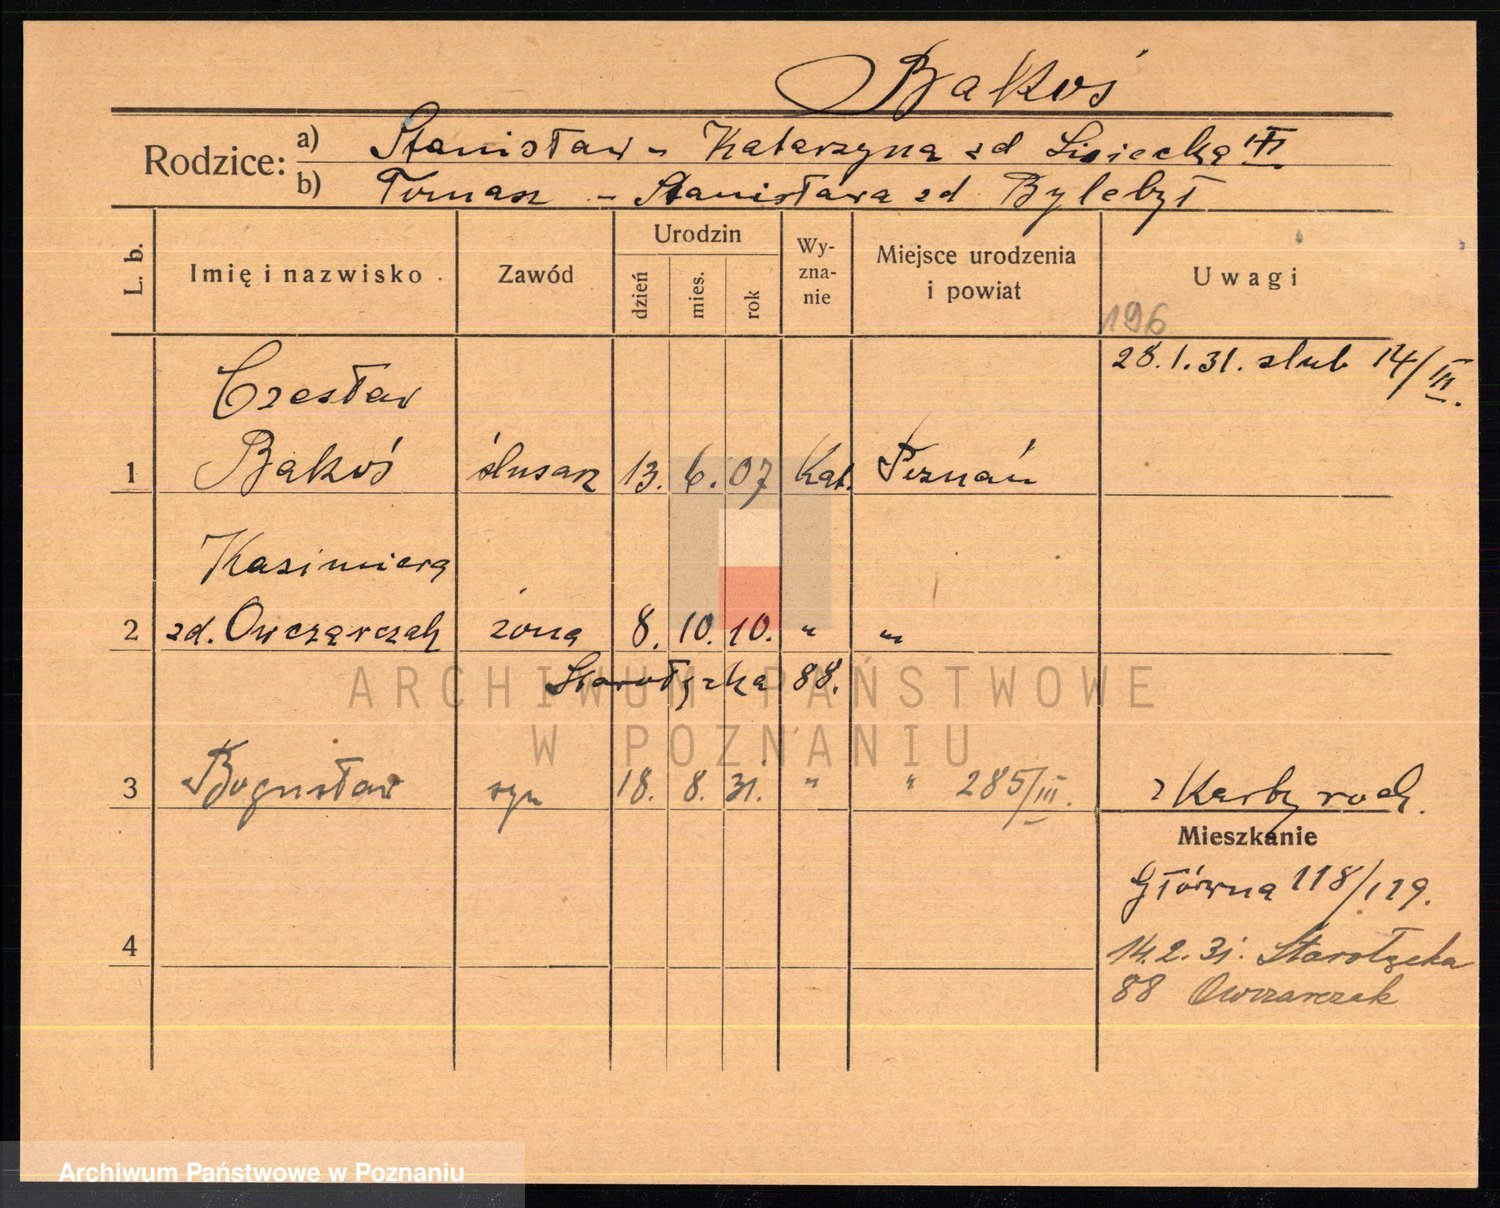 Bąkoś
Rodzice:
a) Stanisław - Katarzyna zd Lisiecka VI
b) Tomasz - Stanisława zd Bylebył
L. b.
Imię i nazwisko
Zawód
Urodzin
dzień
mies.
rok
Wy-
zna-
nie
Miejsce urodzenia
i powiat
Uwagi
196
28.1.31. slub 14/III.
Czesław
1 Bąkoś ślusarz 13. 6. 07 Kat. Poznań
Kazimiera
2 zd. Owczarczak żona 8. 10. 10. " "
Starołęcka 88.
3 Bogusław syn 18. 8. 31. " " 285/III.
Mieszkanie
Główna 118/119.
4
14.2.31. Starołęcka
88 Owczarczak
ARCHIWUM PAŃSTWOWE
W POZNANIU
Archiwum Państwowe w Poznaniu